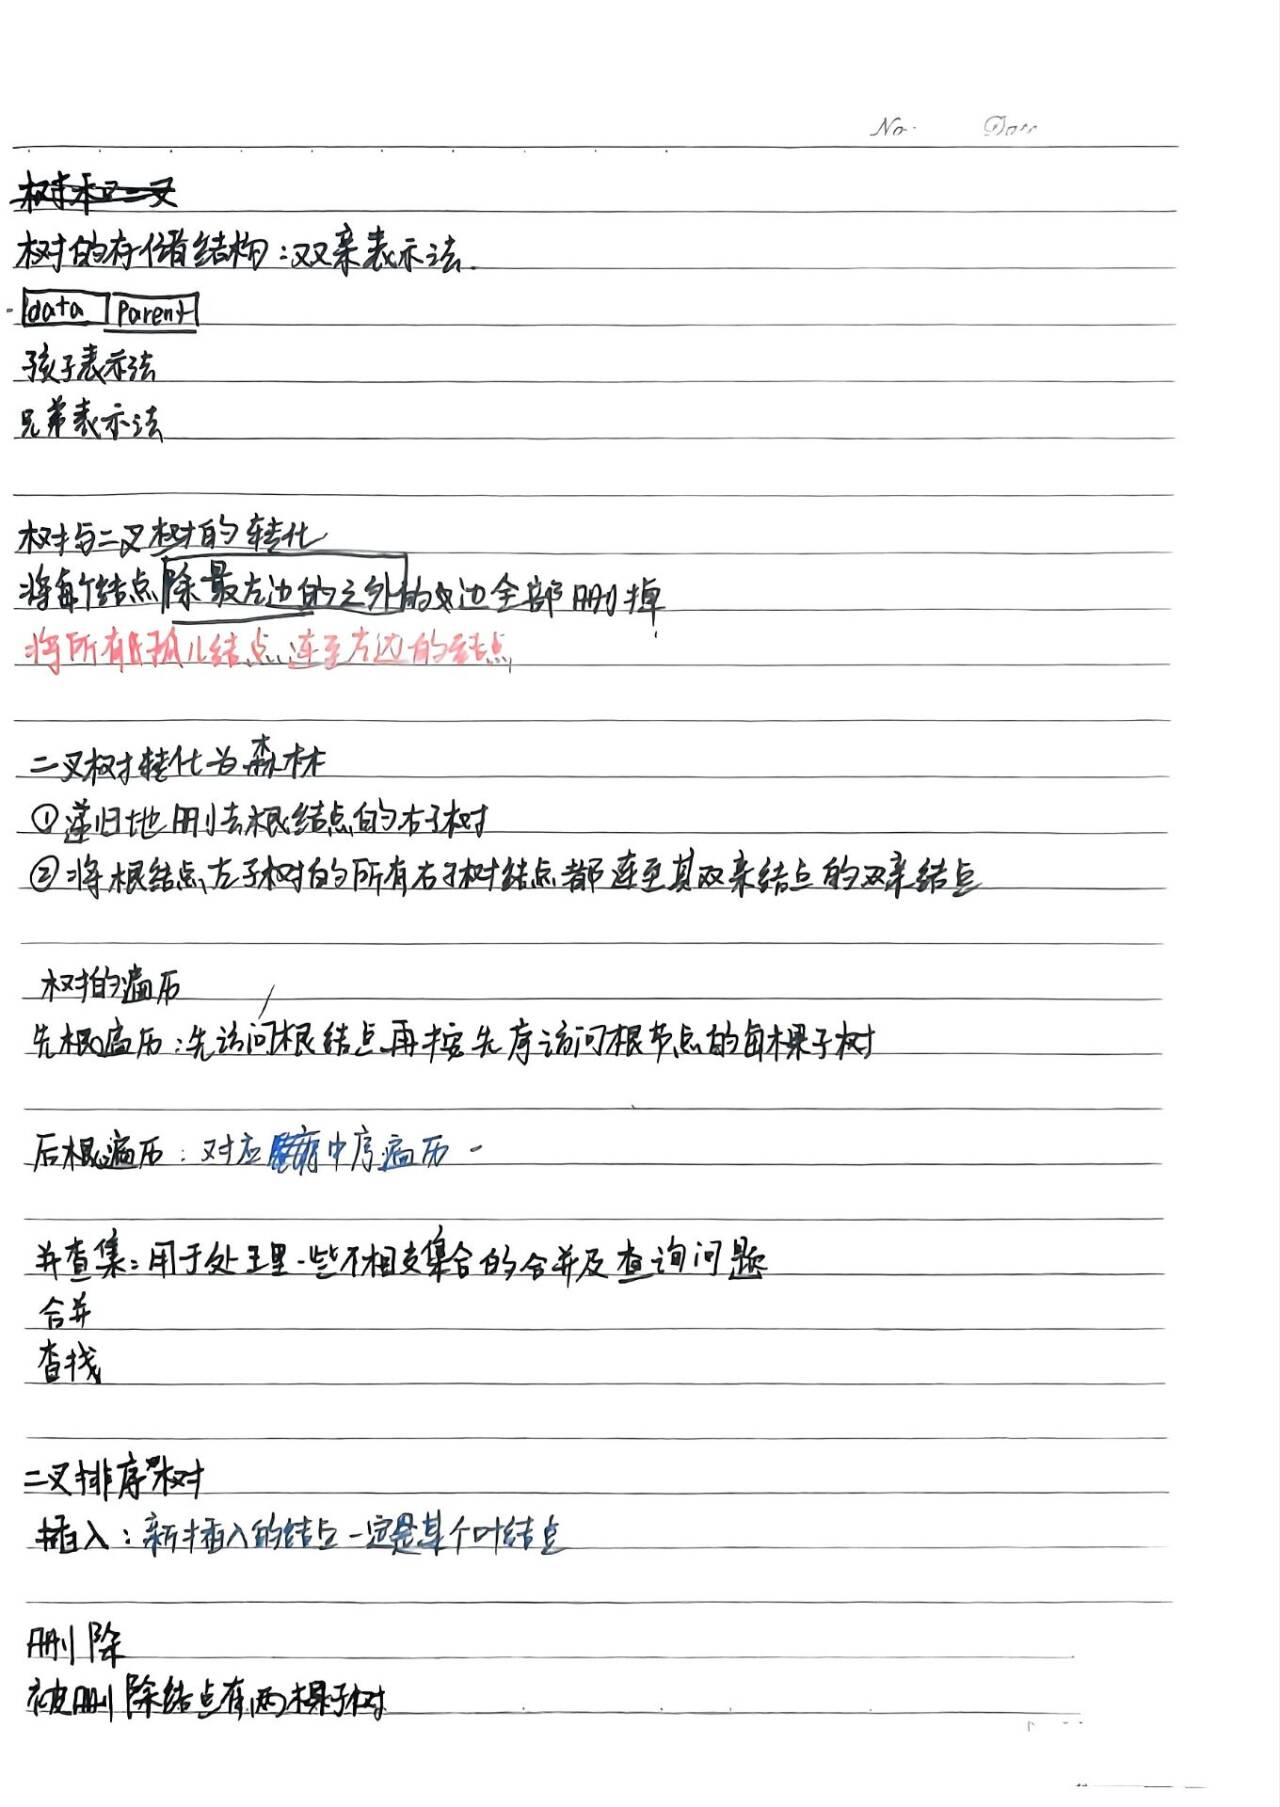 No. Date
树和二叉
树的存储结构:双亲表示法.
data parent
孩子表示法
兄弟表示法
树与二叉树的转化
将每个结点除最左边的之外的边全部删掉
将所有孤儿结点连至左边的结点
二叉树转化为森林
①递归地删去根结点的右子树
②将根结点左子树的所有右子树结点都连至其双亲结点的双亲结点
树的遍历
先根遍历:先访问根结点再按先序访问根节点的每棵子树
后根遍历:对应中序遍历
并查集:用于处理一些不相交集合的合并及查询问题
合并
查找
二叉排序树
插入:新插入的结点一定是某个叶结点
删除
被删除结点有两棵子树